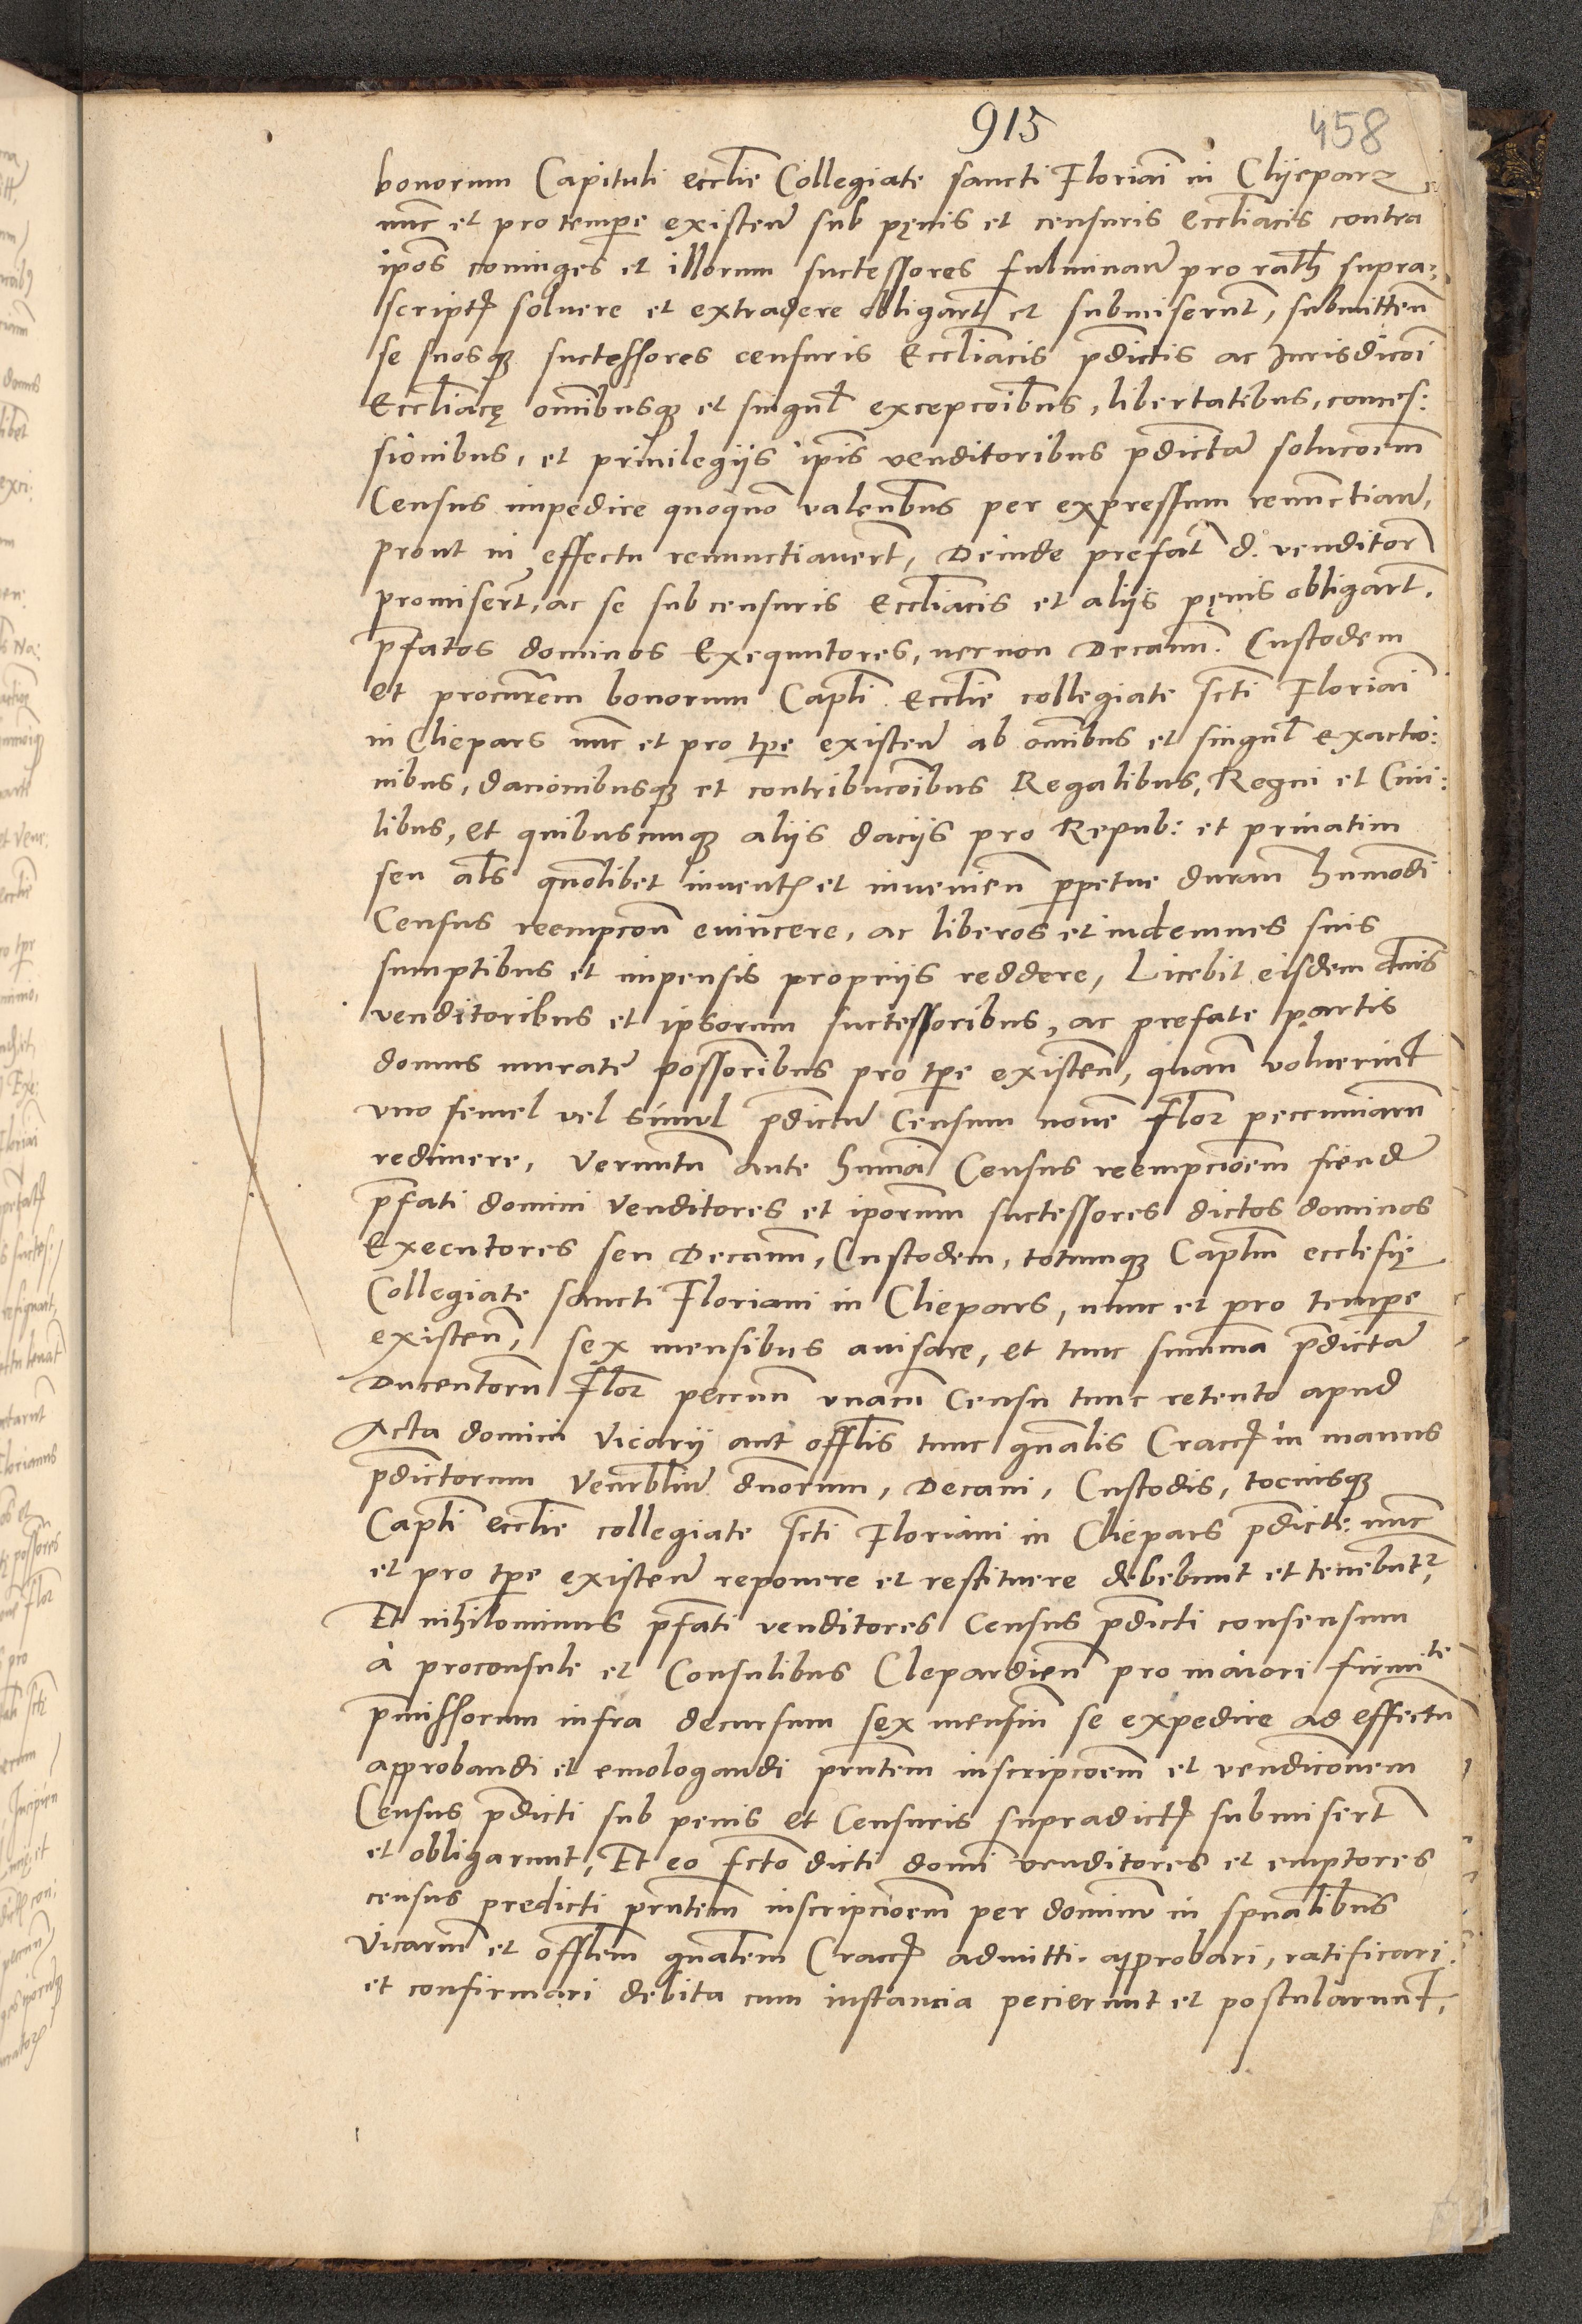 915 458
bonorum Capituli eccłie Collegiate sancti Floriani in Clijeparz
nunc et pro tempore existeñ sub pęnis et censuris Eccliacis contra
ipos coniuges et illorum successores fulminañ pro ratis supra:
script soluere et extradere obligart et submiserunt, submitteñ
se suosq successores censuris Eccliacis pdictis ac Jurisdicoi
Eccliacę omibusq et singul excepcoibus, libertatibus, conces:
sionibus, et priuilegijs ipis venditoribus pdictam solucoem
Census impedire quoquo valentibus per expressum renunctiañ,
prout in effectu renunctiauert, Deinde prefat d. venditor
promisert, ac se sub censuris Eccliacis et alijs pęnis obligart.
pfatos dominos Exequutores, necnon Decanum. Custodem
et procurem bonorum Capli Ecclie collegiate scti Floriai
in Cliepars nunc et pro tpe existeñ ab omibus et singul exactio:
nibus, dacionibusq et contribucoibus Regalibus, Regni et Ciui:
libus, et quibuscunq alijs dacijs pro Repub: et priuatim
seu als quolibet inuent et inuenieñ perpetue durañ humodi
Census reempcoñ euincere, ac liberos et indemnes suis
sumptibus et impensis proprijs reddere, Licebit eisdem dnis
venditoribus et ipsorum successoribus, ac prefate partis
domus murate possoribus pro tpe existeñ, quañ voluerint
vno semel vel simul pdictum Censum nouem Flor peccuniarum
redimere, Veruntm ante humoi Census reempcioem fiendam
pfati domini Venditores et iporum successores dictos dominos
Executores seu Decanum, Custodem, totumq Caplum ecclesię
Collegiate sancti Floriani in Cliepars, nunc et pro tempore
existeñ, sex mensibus auisare, et tunc summa pdictam
Ducentorum Flor peccun vnacum Censu tunc retento apud
Acta domini Vicarij aut offlis tunc gnalis Cracc in manus
pdictorum Venerblium dnorum, Decani, Custodis, tociusq
Capli ecclie collegiate scti Floriani in Cliepars pdicte nunc
et pro tpe existeñ reponere et restituere debebunt et tenebunt,
Et nihilominus pfati venditores Census pdicti consensum
à proconsule et Consulibus Clepardieñ pro maiori firmite
pmissorum infra decursum sex mensium se expedire ad effectum
approbandi et emologandi pntem inscripcoem et vendicionem
Census pdicti sub penis et Censuris supradict submisert
et obligarunt, Et eo fcto dicti domi venditores et emptores
census predicti pntem inscripcioem per dominum in spualibus
Vicarium et offlem gnalem Cracc admitti. approbari, ratificari
et confirmari debita cum instancia pecierunt et postularunt,